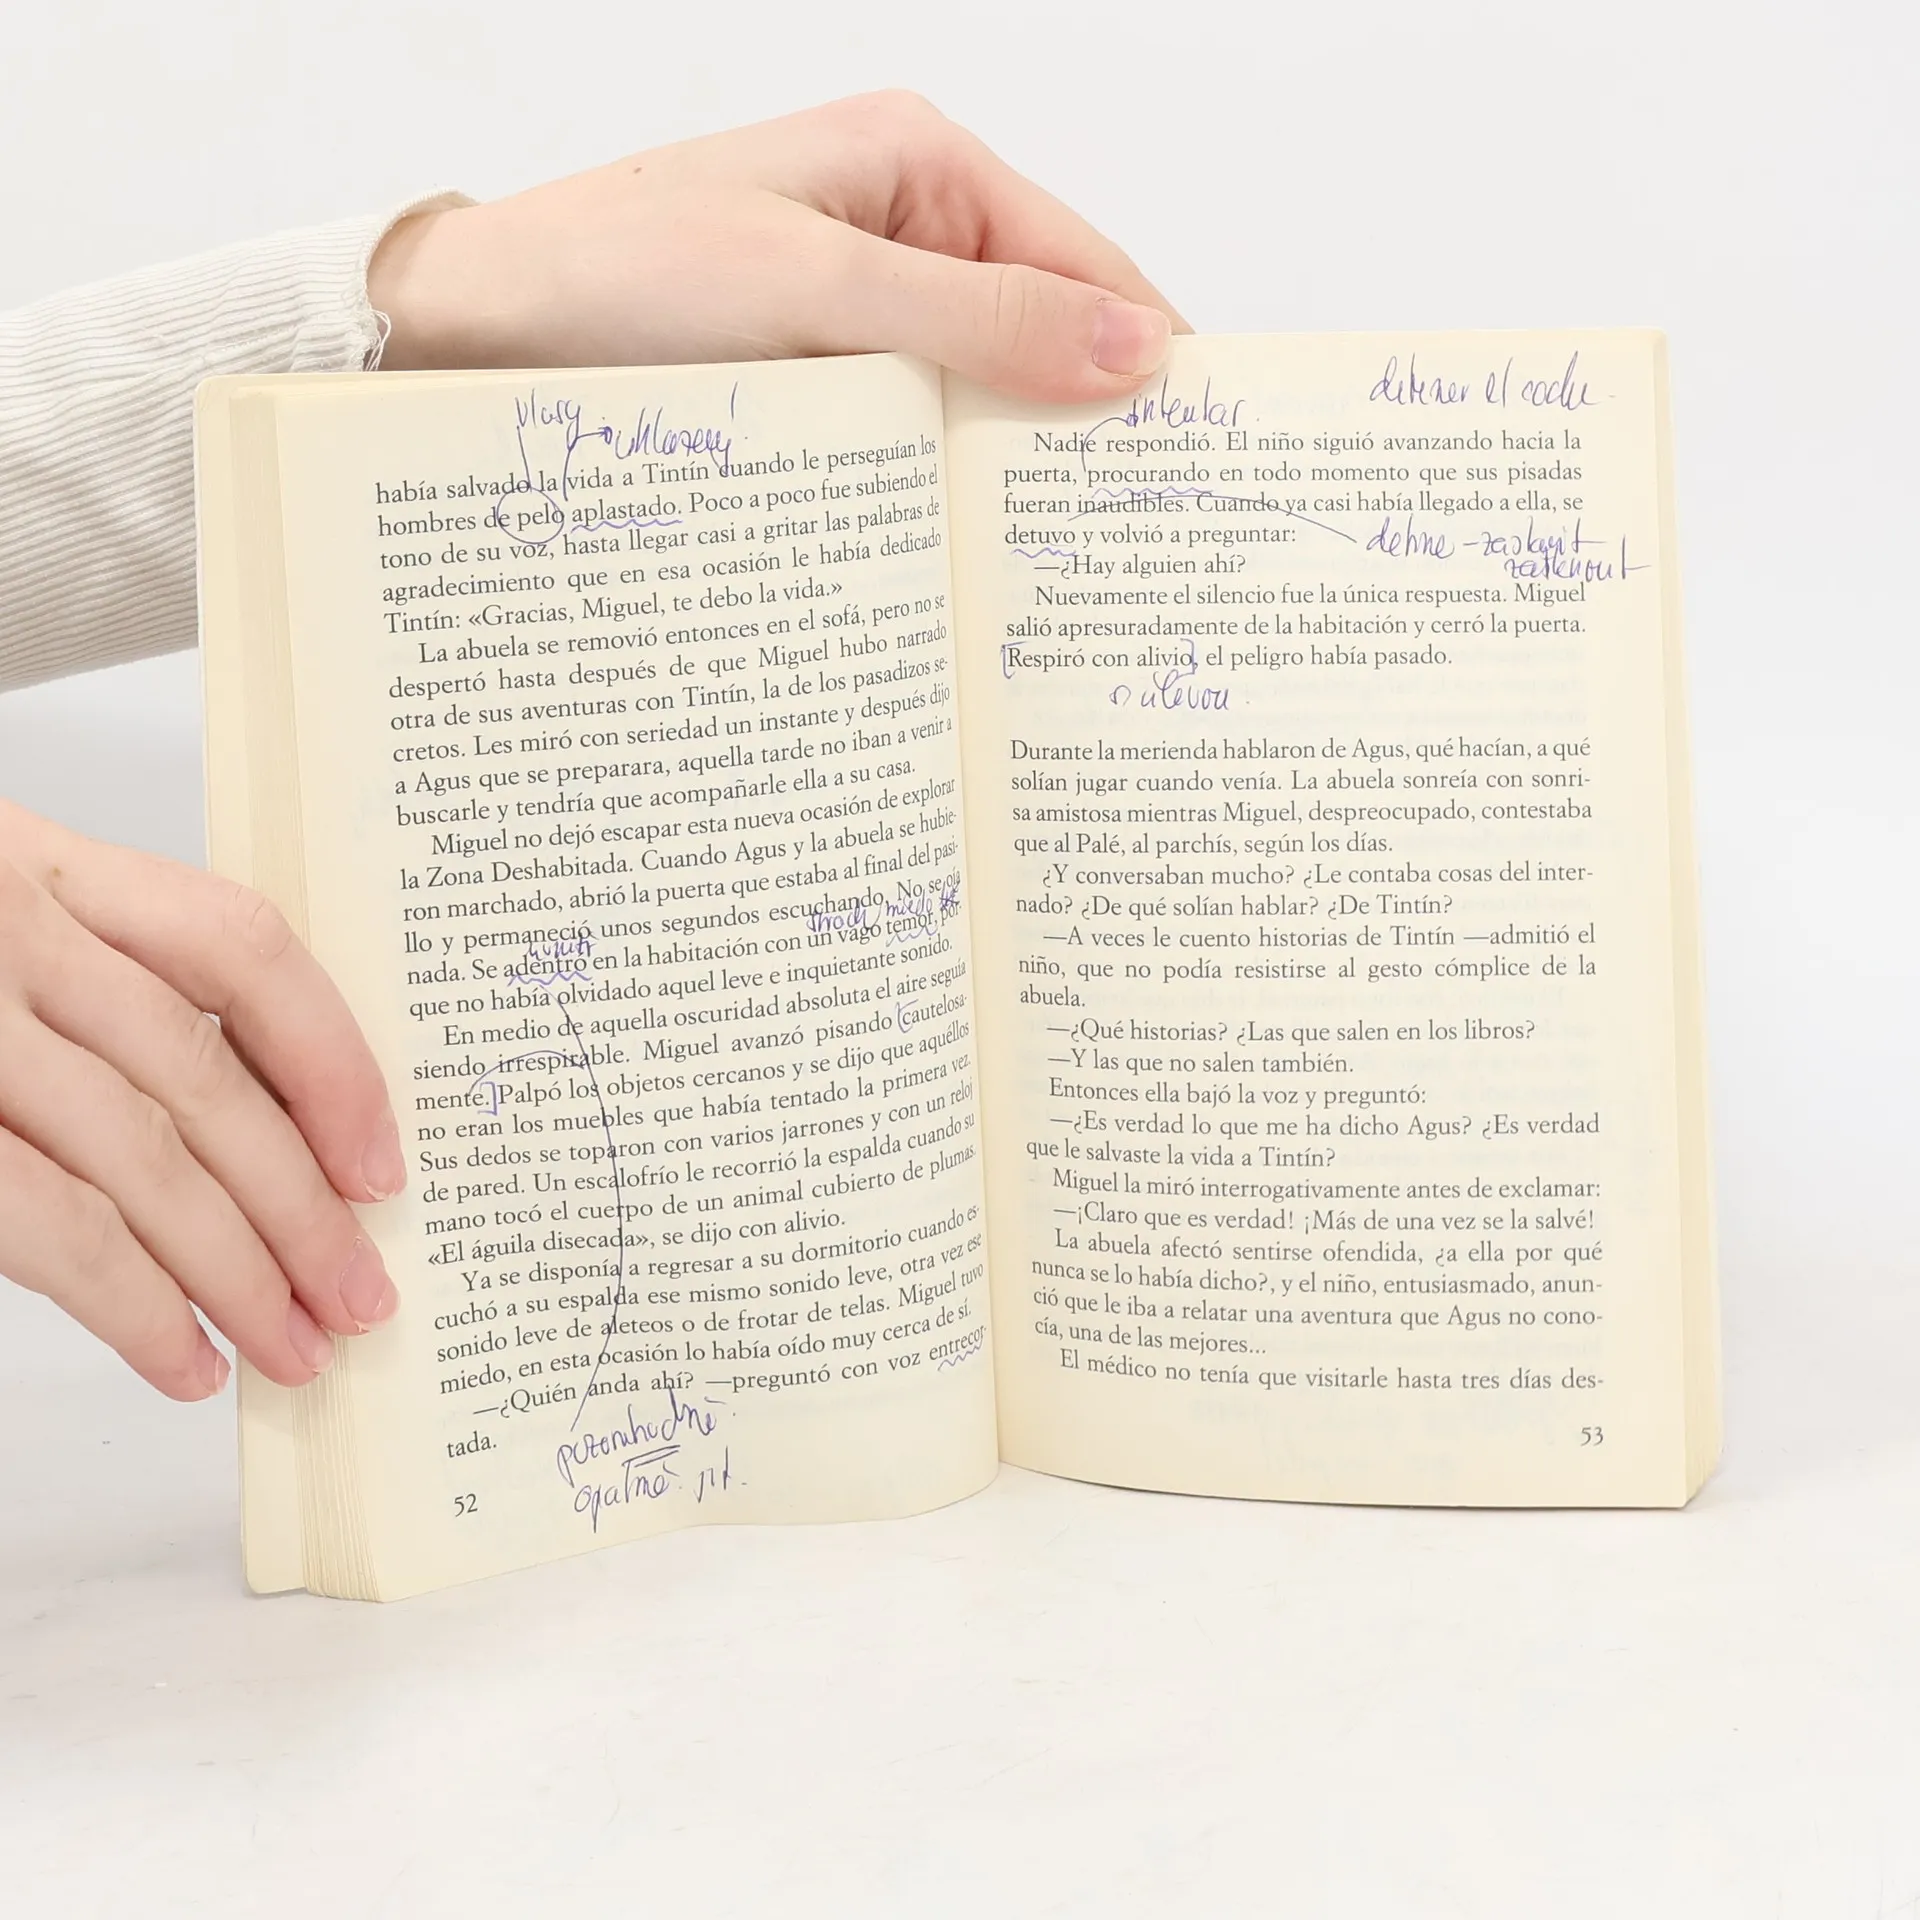 vlasy
uhlazený
había salvado la vida a Tintín cuando le perseguían los
hombres de pelo aplastado. Poco a poco fue subiendo el
tono de su voz, hasta llegar casi a gritar las palabras de
agradecimiento que en esa ocasión le había dedicado
Tintín: «Gracias, Miguel, te debo la vida.»
La abuela se removió entonces en el sofá, pero no se
despertó hasta después de que Miguel hubo narrado
otra de sus aventuras con Tintín, la de los pasadizos se-
cretos. Les miró con seriedad un instante y después dijo
a Agus que se preparara, aquella tarde no iban a venir a
buscarle y tendría que acompañarle ella a su casa.
Miguel no dejó escapar esta nueva ocasión de explorar
la Zona Deshabitada. Cuando Agus y la abuela se hubie-
ron marchado, abrió la puerta que estaba al final del pasi-
llo y permaneció unos segundos escuchando. No se oía
strach miedo
nada. Se adentró en la habitación con un vago temor, por-
que no había olvidado aquel leve e inquietante sonido.
En medio de aquella oscuridad absoluta el aire seguía
siendo irrespirable. Miguel avanzó pisando cautelosa-
mente. Palpó los objetos cercanos y se dijo que aquéllos
no eran los muebles que había tentado la primera vez.
Sus dedos se toparon con varios jarrones y con un reloj
de pared. Un escalofrío le recorrió la espalda cuando su
mano tocó el cuerpo de un animal cubierto de plumas.
«El águila disecada», se dijo con alivio.
Ya se disponía a regresar a su dormitorio cuando es-
cuchó a su espalda ese mismo sonido leve, otra vez ese
sonido leve de aleteos o de frotar de telas. Miguel tuvo
miedo, en esta ocasión lo había oído muy cerca de sí.
—¿Quién anda ahí? —preguntó con voz entrecor-
tada.
opatrně jít.
52
intentar.
detener el coche.
Nadie respondió. El niño siguió avanzando hacia la
puerta, procurando en todo momento que sus pisadas
fueran inaudibles. Cuando ya casi había llegado a ella, se
detuvo y volvió a preguntar:
—¿Hay alguien ahí?
Nuevamente el silencio fue la única respuesta. Miguel
salió apresuradamente de la habitación y cerró la puerta.
Respiró con alivio, el peligro había pasado.
s úlevou.
Durante la merienda hablaron de Agus, qué hacían, a qué
solían jugar cuando venía. La abuela sonreía con sonri-
sa amistosa mientras Miguel, despreocupado, contestaba
que al Palé, al parchís, según los días.
¿Y conversaban mucho? ¿Le contaba cosas del inter-
nado? ¿De qué solían hablar? ¿De Tintín?
—A veces le cuento historias de Tintín —admitió el
niño, que no podía resistirse al gesto cómplice de la
abuela.
—¿Qué historias? ¿Las que salen en los libros?
—Y las que no salen también.
Entonces ella bajó la voz y preguntó:
—¿Es verdad lo que me ha dicho Agus? ¿Es verdad
que le salvaste la vida a Tintín?
Miguel la miró interrogativamente antes de exclamar:
—¡Claro que es verdad! ¡Más de una vez se la salvé!
La abuela afectó sentirse ofendida, ¿a ella por qué
nunca se lo había dicho?, y el niño, entusiasmado, anun-
ció que le iba a relatar una aventura que Agus no cono-
cía, una de las mejores...
El médico no tenía que visitarle hasta tres días des-
53